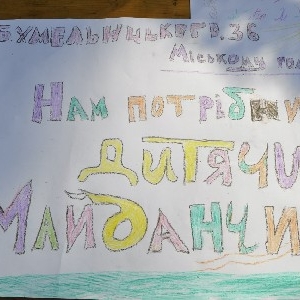 Б.ХМЕЛЬНИЦЬКОГО 36
МІСЬКОМУ ГОЛ
НАМ ПОТРІБНИ
ДИТЯЧИ
МАЙДАНЧИ